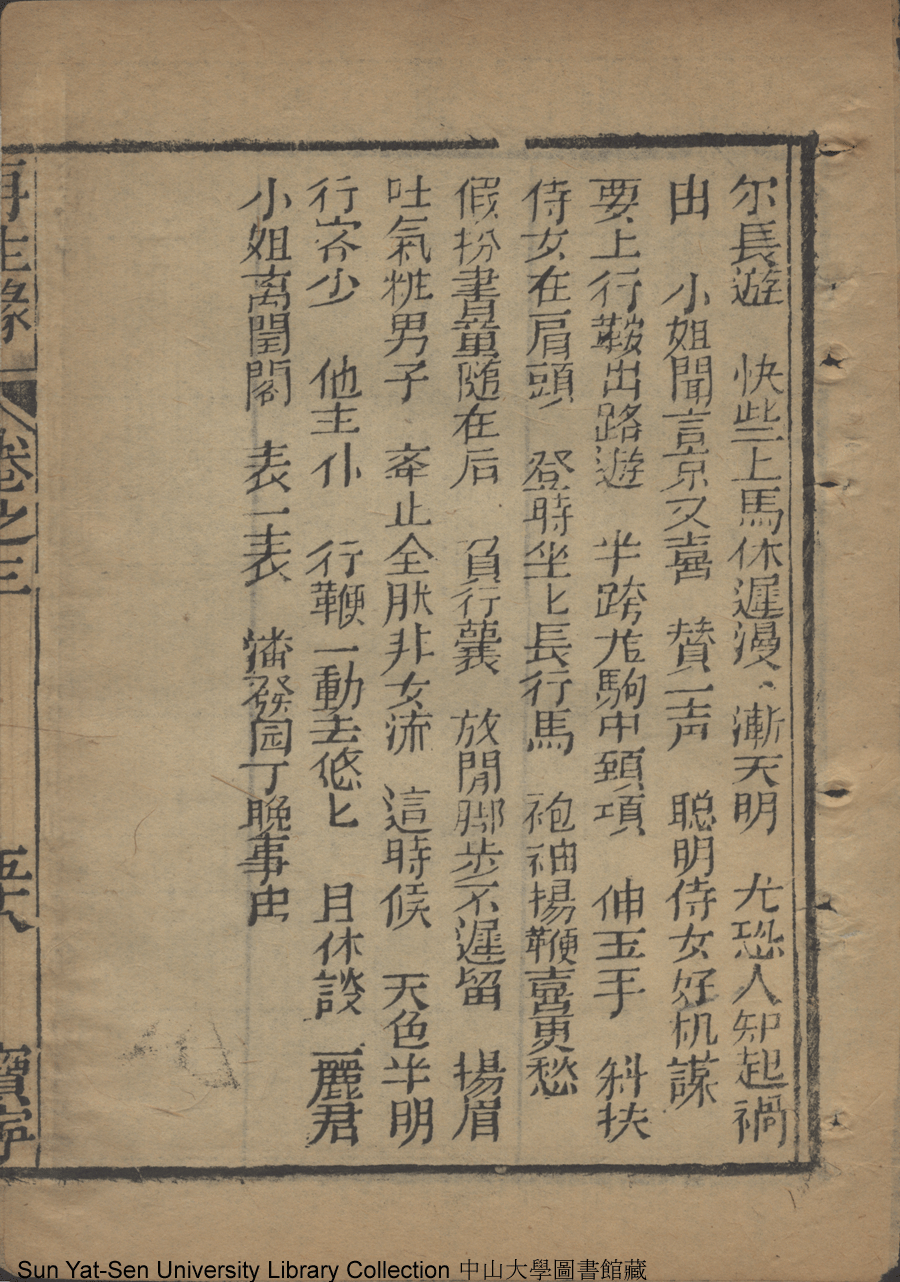 尔長遊　快些上馬休遲漫、漸天明　尤恐人知起禍
由　小姐聞言京又喜　賛一声　聪明侍女好机謀
要上行鞍出路遊　半跨龙駒中頚項　伸玉手　斜扶
侍女在肩頭　登時坐匕長行馬　袍袖揚鞭喜更愁
假扮書童随在后　負行囊　放開脚步不遲留　揚眉
吐氣粧男子　牽止全肰非女流　這時候　天色半明
行客少　他主仆　行鞭一動去悠匕　且休談　麗君
小姐离閨閣　表一表　潘發园丁晚事由
再生緣　卷之三　五十八　寶寧
Sun Yat-Sen University Library Collection 中山大學圖書館藏